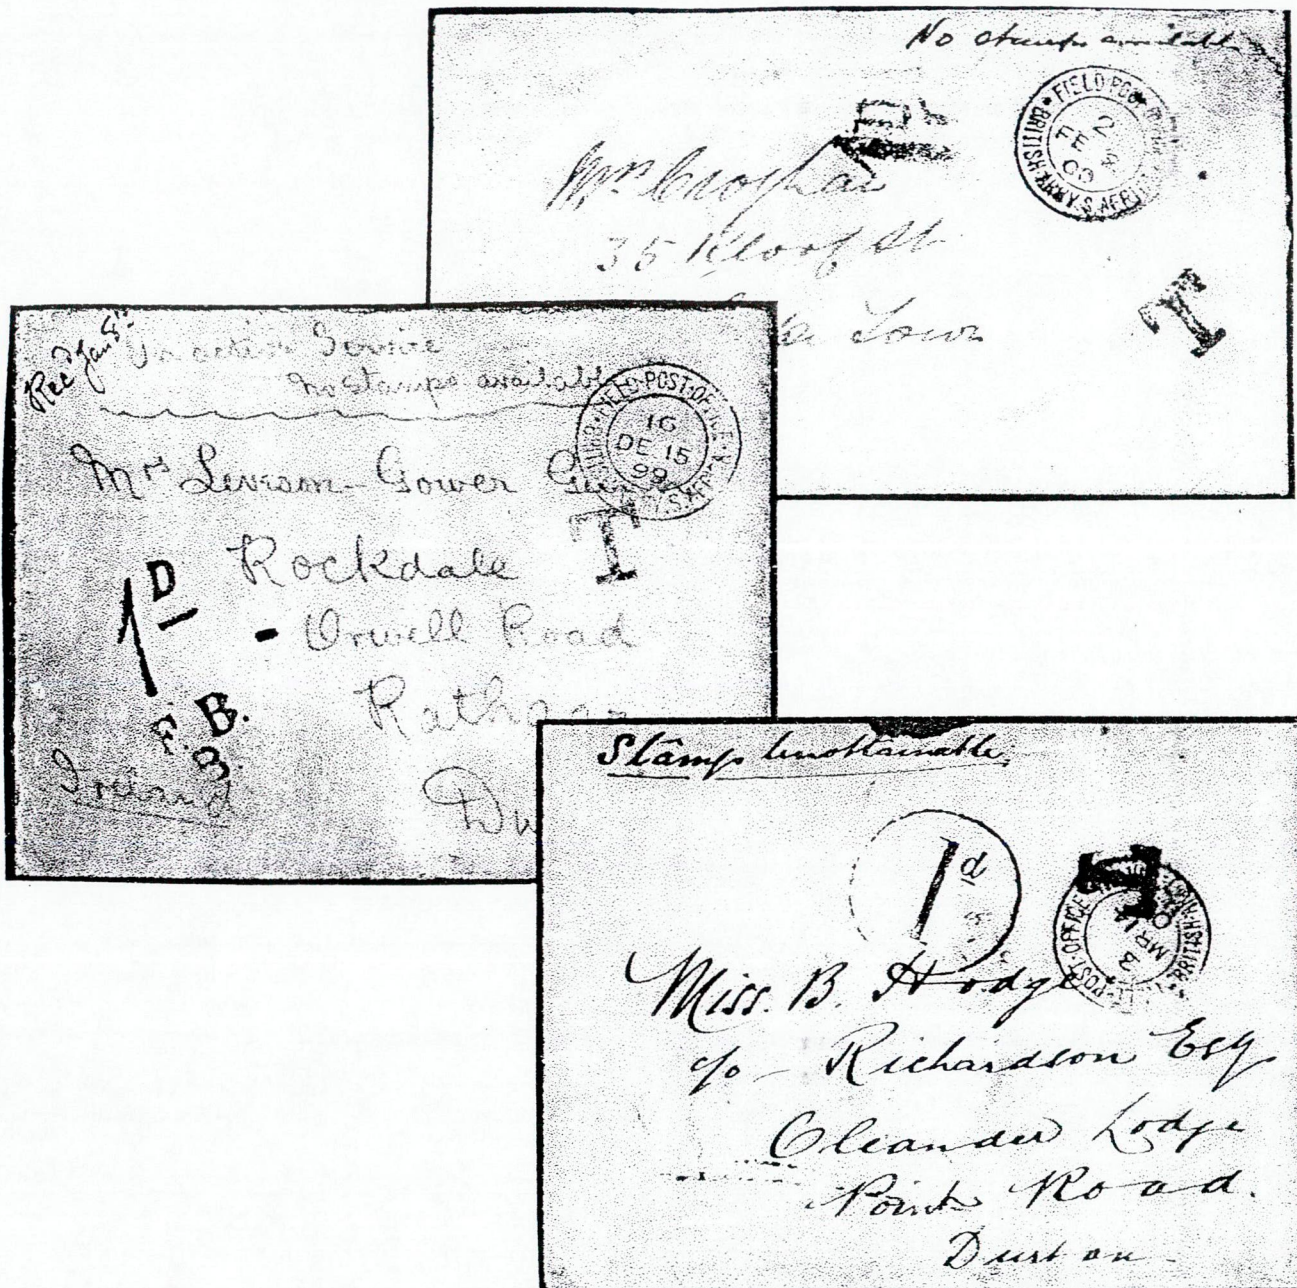 No stamps available
FIELD POST
BRITISH ARMY S. AFRI
2
FE
00
1D
Mrs
35 Kloof St
Town
T
Recd Jan 8th
On active Service
No stamps available
FIELD POST OFFICE
BRITISH S. AFRICA
16
DE 15
99
Mrs Leveson-Gower
T
Rockdale
1D
- Orwell Road
F.B.
3.
Ireland
Du
Stamps Unobtainable
1d
T
POST OFFICE BRITISH
3
MR 14
0
Miss. B. Hodge
c/o - Richardson Esq
Oleander Lodge
Point Road.
Durban